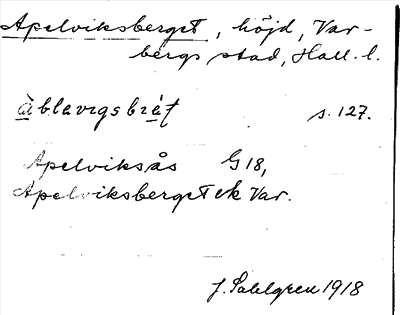 Apelviksberget, höjd, Var-
bergs stad, Hall. l.
àblavıgsbràt s. 127.
Apelviksås G 18,
Apelviksberget ek Var.
J. Sahlgren 1918